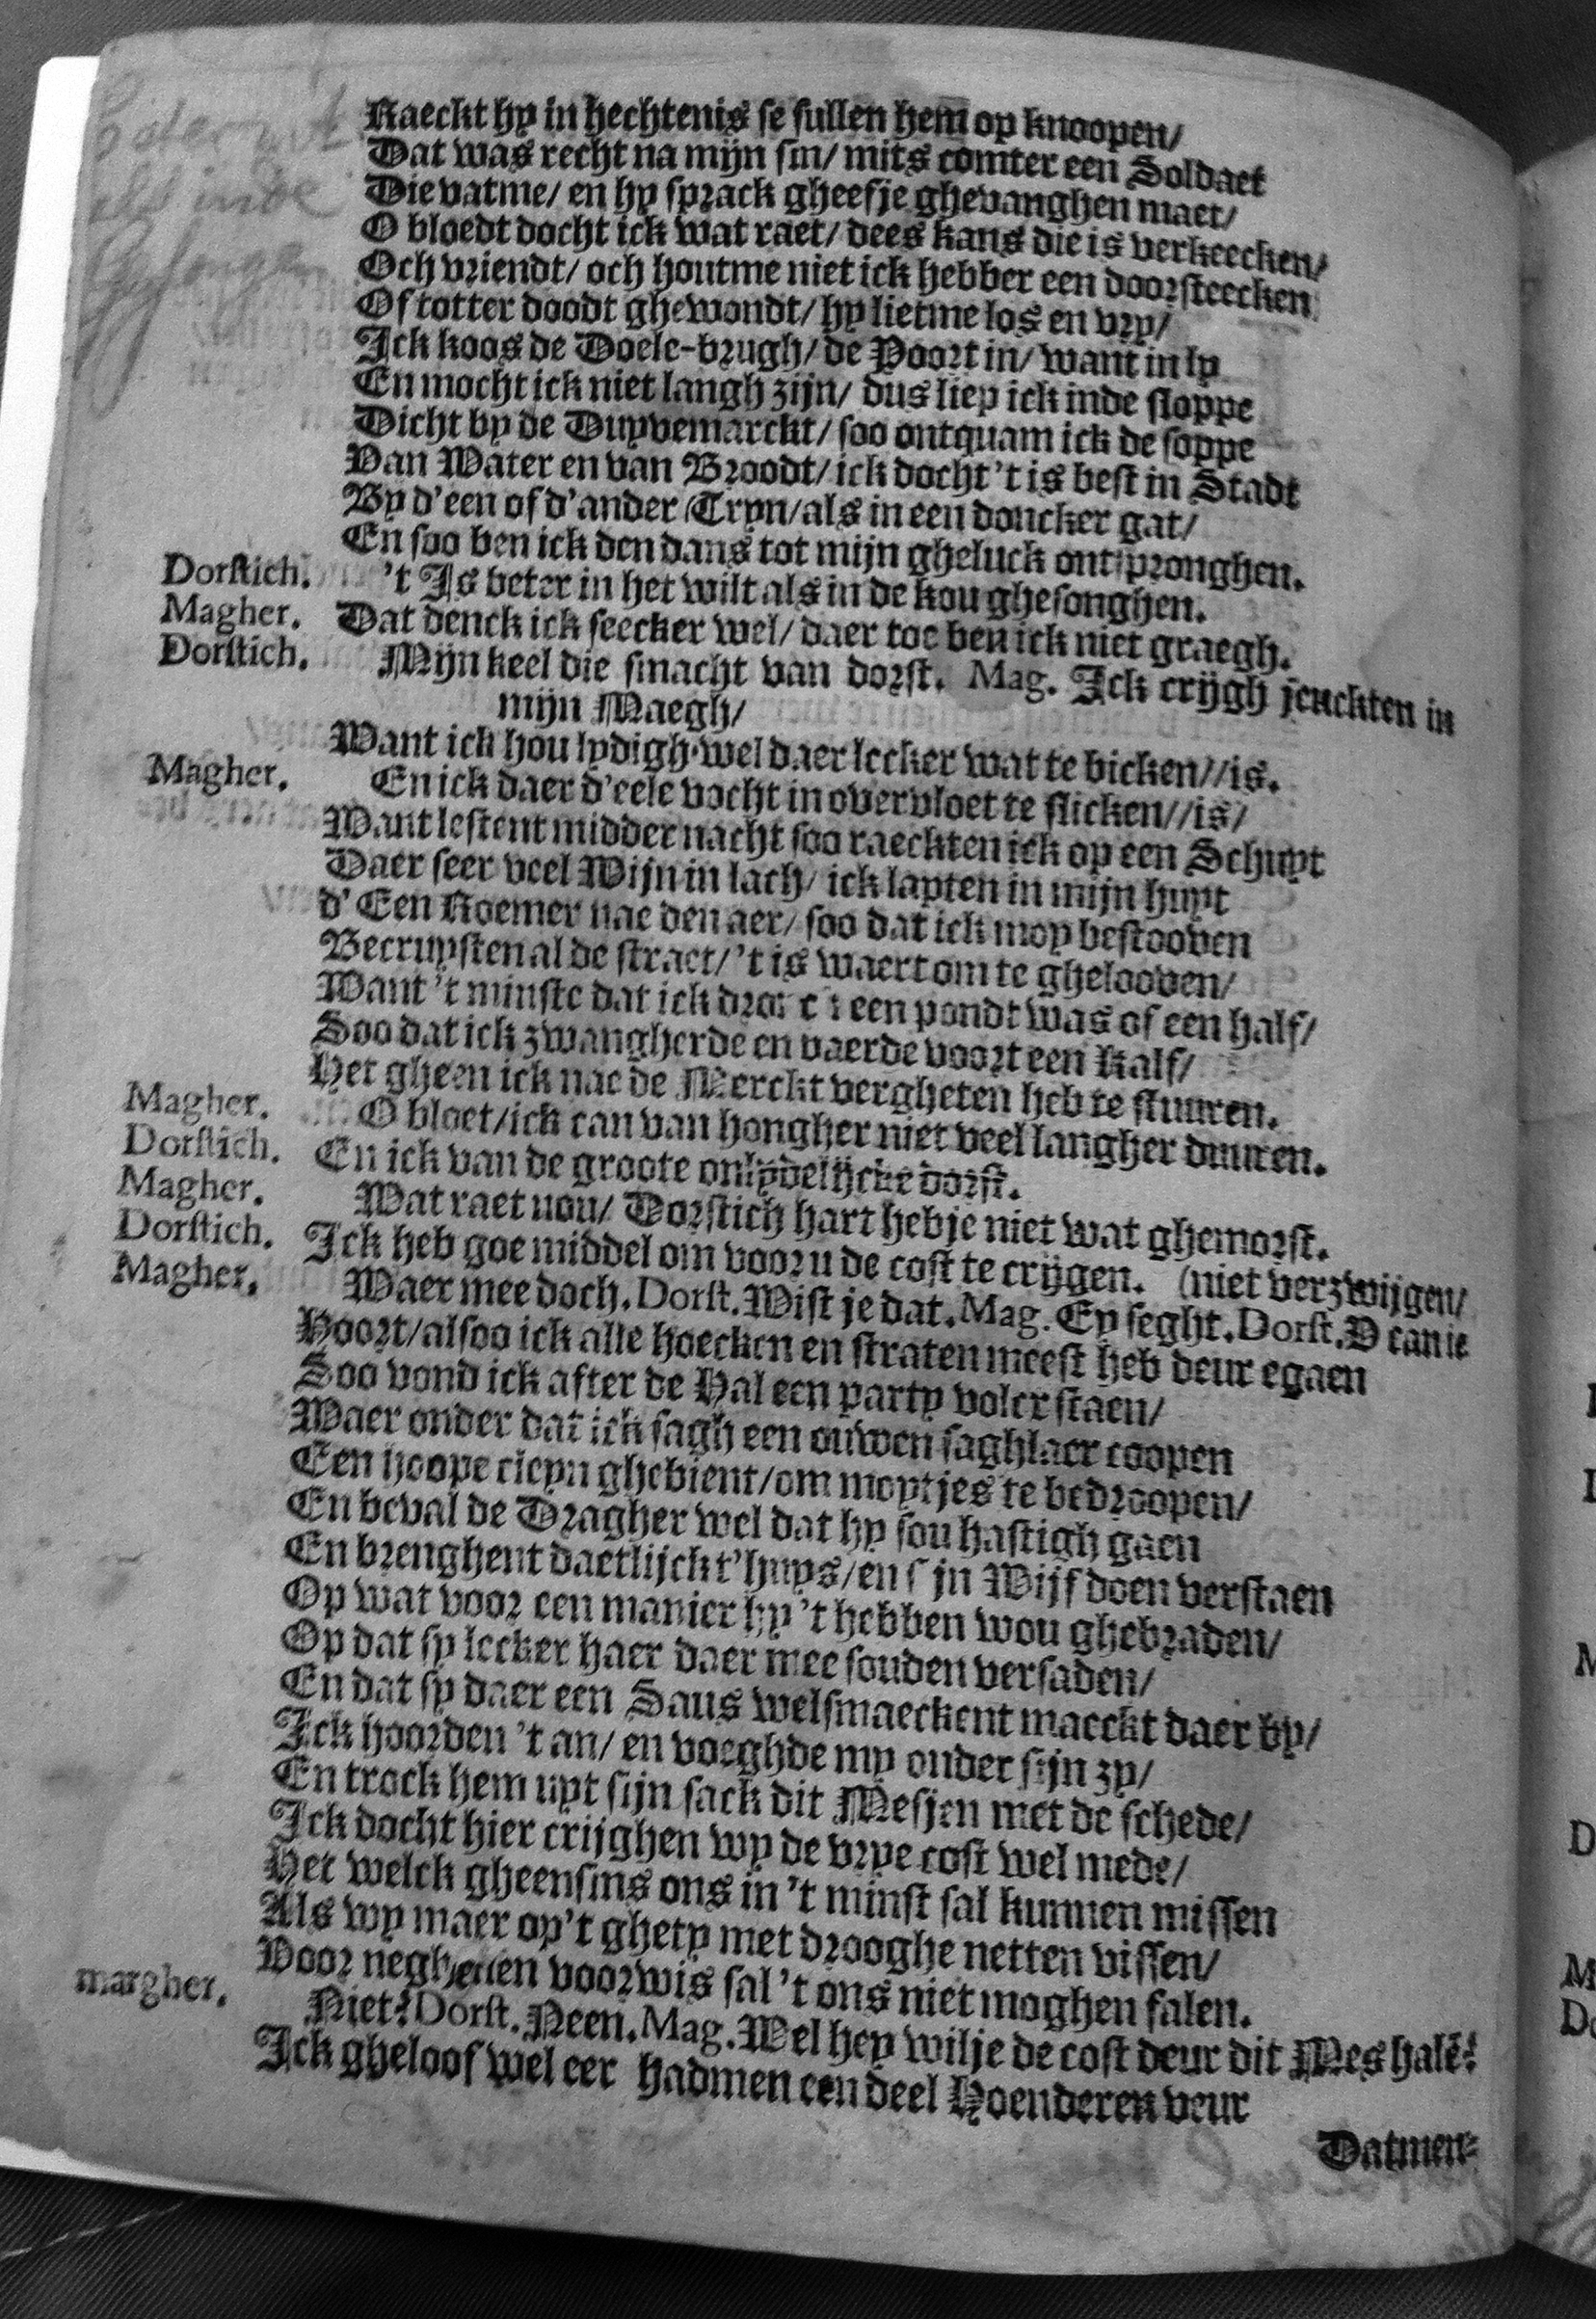 Raeckt hy in hechtenis se sullen hem op knoopen/
Dat was recht na mijn sin/ mits comter een Soldaet
Die vatme/ en hy sprack gheefje ghevanghen maet/
O bloedt docht ick wat raet/ dees kans die is verkeecken/
Och vriendt/ och houtme niet ick hebber een doorsteecken
Of totter doodt ghewondt/ hy lietme los en vry/
Ick koos de Doele-brugh/ de Poort in/ want in ly
En mocht ick niet langh zijn/ dus liep ick inde sloppe
Dicht by de Duyvemarckt/ soo ontquam ick de soppe
Van Water en van Broodt/ ick docht 't is best in Stadt
By d'een of d'ander Tryn/ als in een doncker gat/
En soo ben ick den dans tot mijn gheluck ontspronghen.
Dorstich. 't Is beter in het wilt als in de kou ghesonghen.
Magher. Dat denck ick seecker wel/ daer toe ben ick niet graegh.
Dorstich. Mijn keel die smacht van dorst. Mag. Ick crijgh jeuckten in
mijn Maegh/
Want ick hou lydigh wel daer lecker wat te bicken//is.
Magher. En ick daer d'eele vocht in overvloet te slicken//is/
Want lestent midder nacht soo raeckten ick op een Schuyt
Daer seer veel Wijn in lach/ ick lapten in mijn huyt
d'Een Roemer nae den aer/ soo dat ick moy bestooven
Becruysten al de straet/ 't is waert om te ghelooven/
Want 't minste dat ick een pondt was of een half/
Soo dat ick zwangherde en vaerde voort een Kalf/
Het gheen ick nae de Merckt vergheten heb te stuuren.
Magher. O bloet/ick can van hongher niet veel langher duuren.
Dorstich. En ick van de groote onlydelijcke dorst.
Magher. Wat raet nou/ Dorstich hart hebje niet wat ghemorst.
Dorstich. Ick heb goe middel om voor u de cost te crijgen. (niet verzwijgen/
Magher. Waer mee doch. Dorst. Wist je dat. Mag. Ey seght. Dorst. D can ic
Hoort/alsoo ick alle hoecken en straten meest heb deur egaen
Soo vond ick after de Hal een party volck staen/
Waer onder dat ick sagh een ouwen saghlaer coopen
Een hoope cleyn ghebient/om moytjes te bedroopen/
En beval de Dragher wel dat hy sou hastigh gaen
En brenghent daetlijck t'huys/en sijn Wijf doen verstaen
Op wat voor een manier hy 't hebben wou ghebraden/
Op dat sy lecker haer daer mee souden versaden/
En dat sy daer een Saus welsmaeckent maeckt daer by/
Ick hoorden 't an/ en voeghde my onder sijn zy/
En trock hem uyt sijn sack dit Mesjen met de schede/
Ick docht hier crijghen wy de vrye cost wel mede/
Het welck gheensins ons in 't minst sal kunnen missen
Als wy maer op't ghety met drooghe netten vissen/
Voor neghenen voorwis sal 't ons niet moghen falen.
margher. Niet? Dorst. Neen. Mag. Wel hey wilje de cost deur dit Mes halē?
Ick gheloof wel eer hadmen een deel Hoenderen veur
Datmen